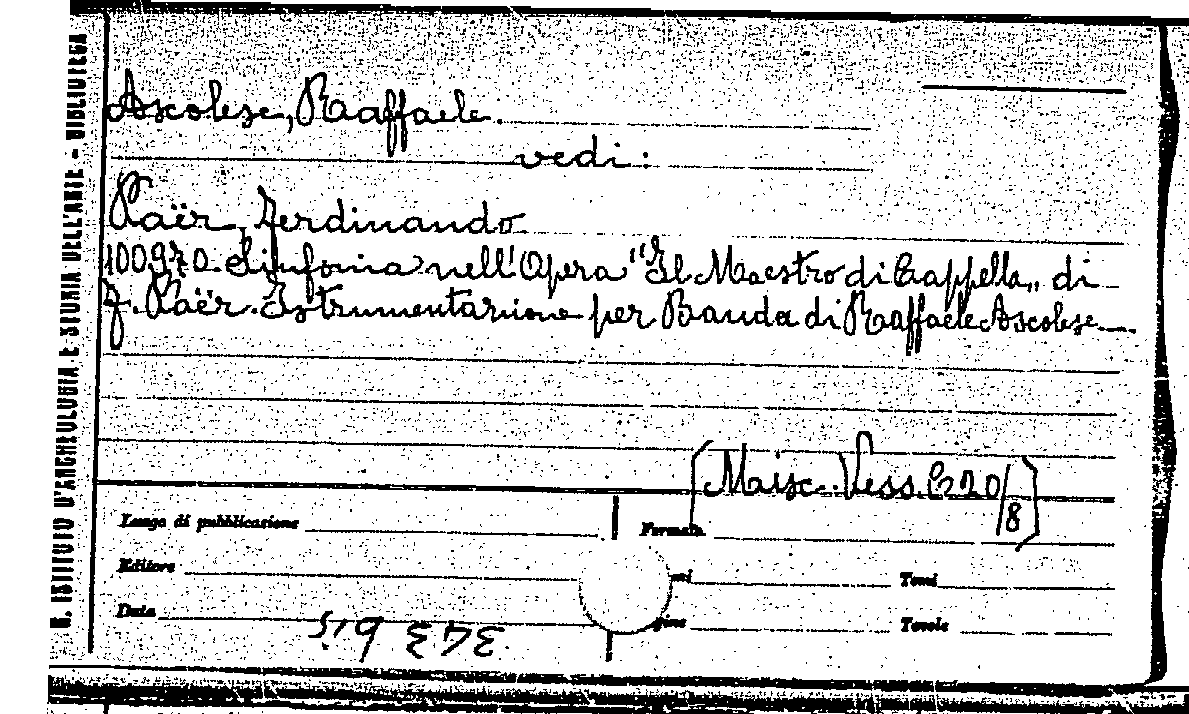 R. ISTITUTO D'ARCHEOLOGIA E STORIA DELL'ARTE - BIBLIOTECA
Ascolese, Raffaele.
vedi:
Paër, Ferdinando
100970. Sinfonia nell'Opera "Il Maestro di Cappella" di
F. Paër. Istrumentazione per Banda di Raffaele Ascolese
[Misc. Vess. C 20/8]
Luogo di pubblicazione Formato
Editore mi Tomi
Data gine Tavole
343 bis